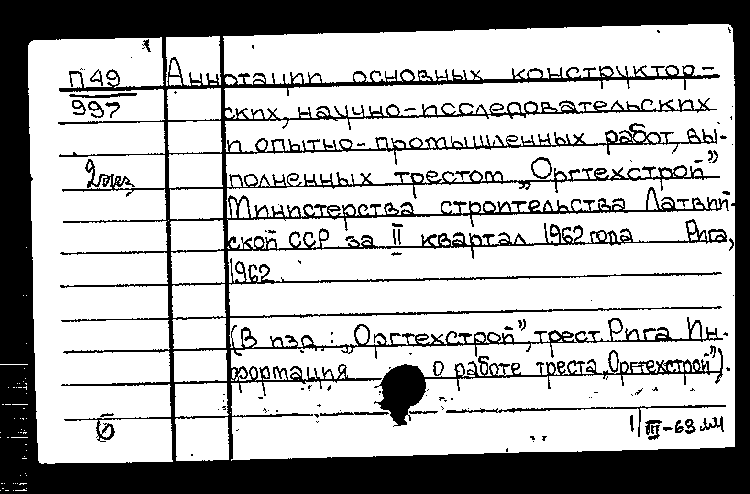 П49
997
2 экз
Аннотации основных конструктор-
ских, научно-исследовательских
и опытно-промышленных работ, вы-
полненных трестом „Оргтехстрой"
Министерства строительства Латвий-
ской ССР за II квартал 1962 года Рига,
1962.
(В изд.: „Оргтехстрой", трест. Рига Ин-
формация о работе треста „Оргтехстрой").
б
1/III-63